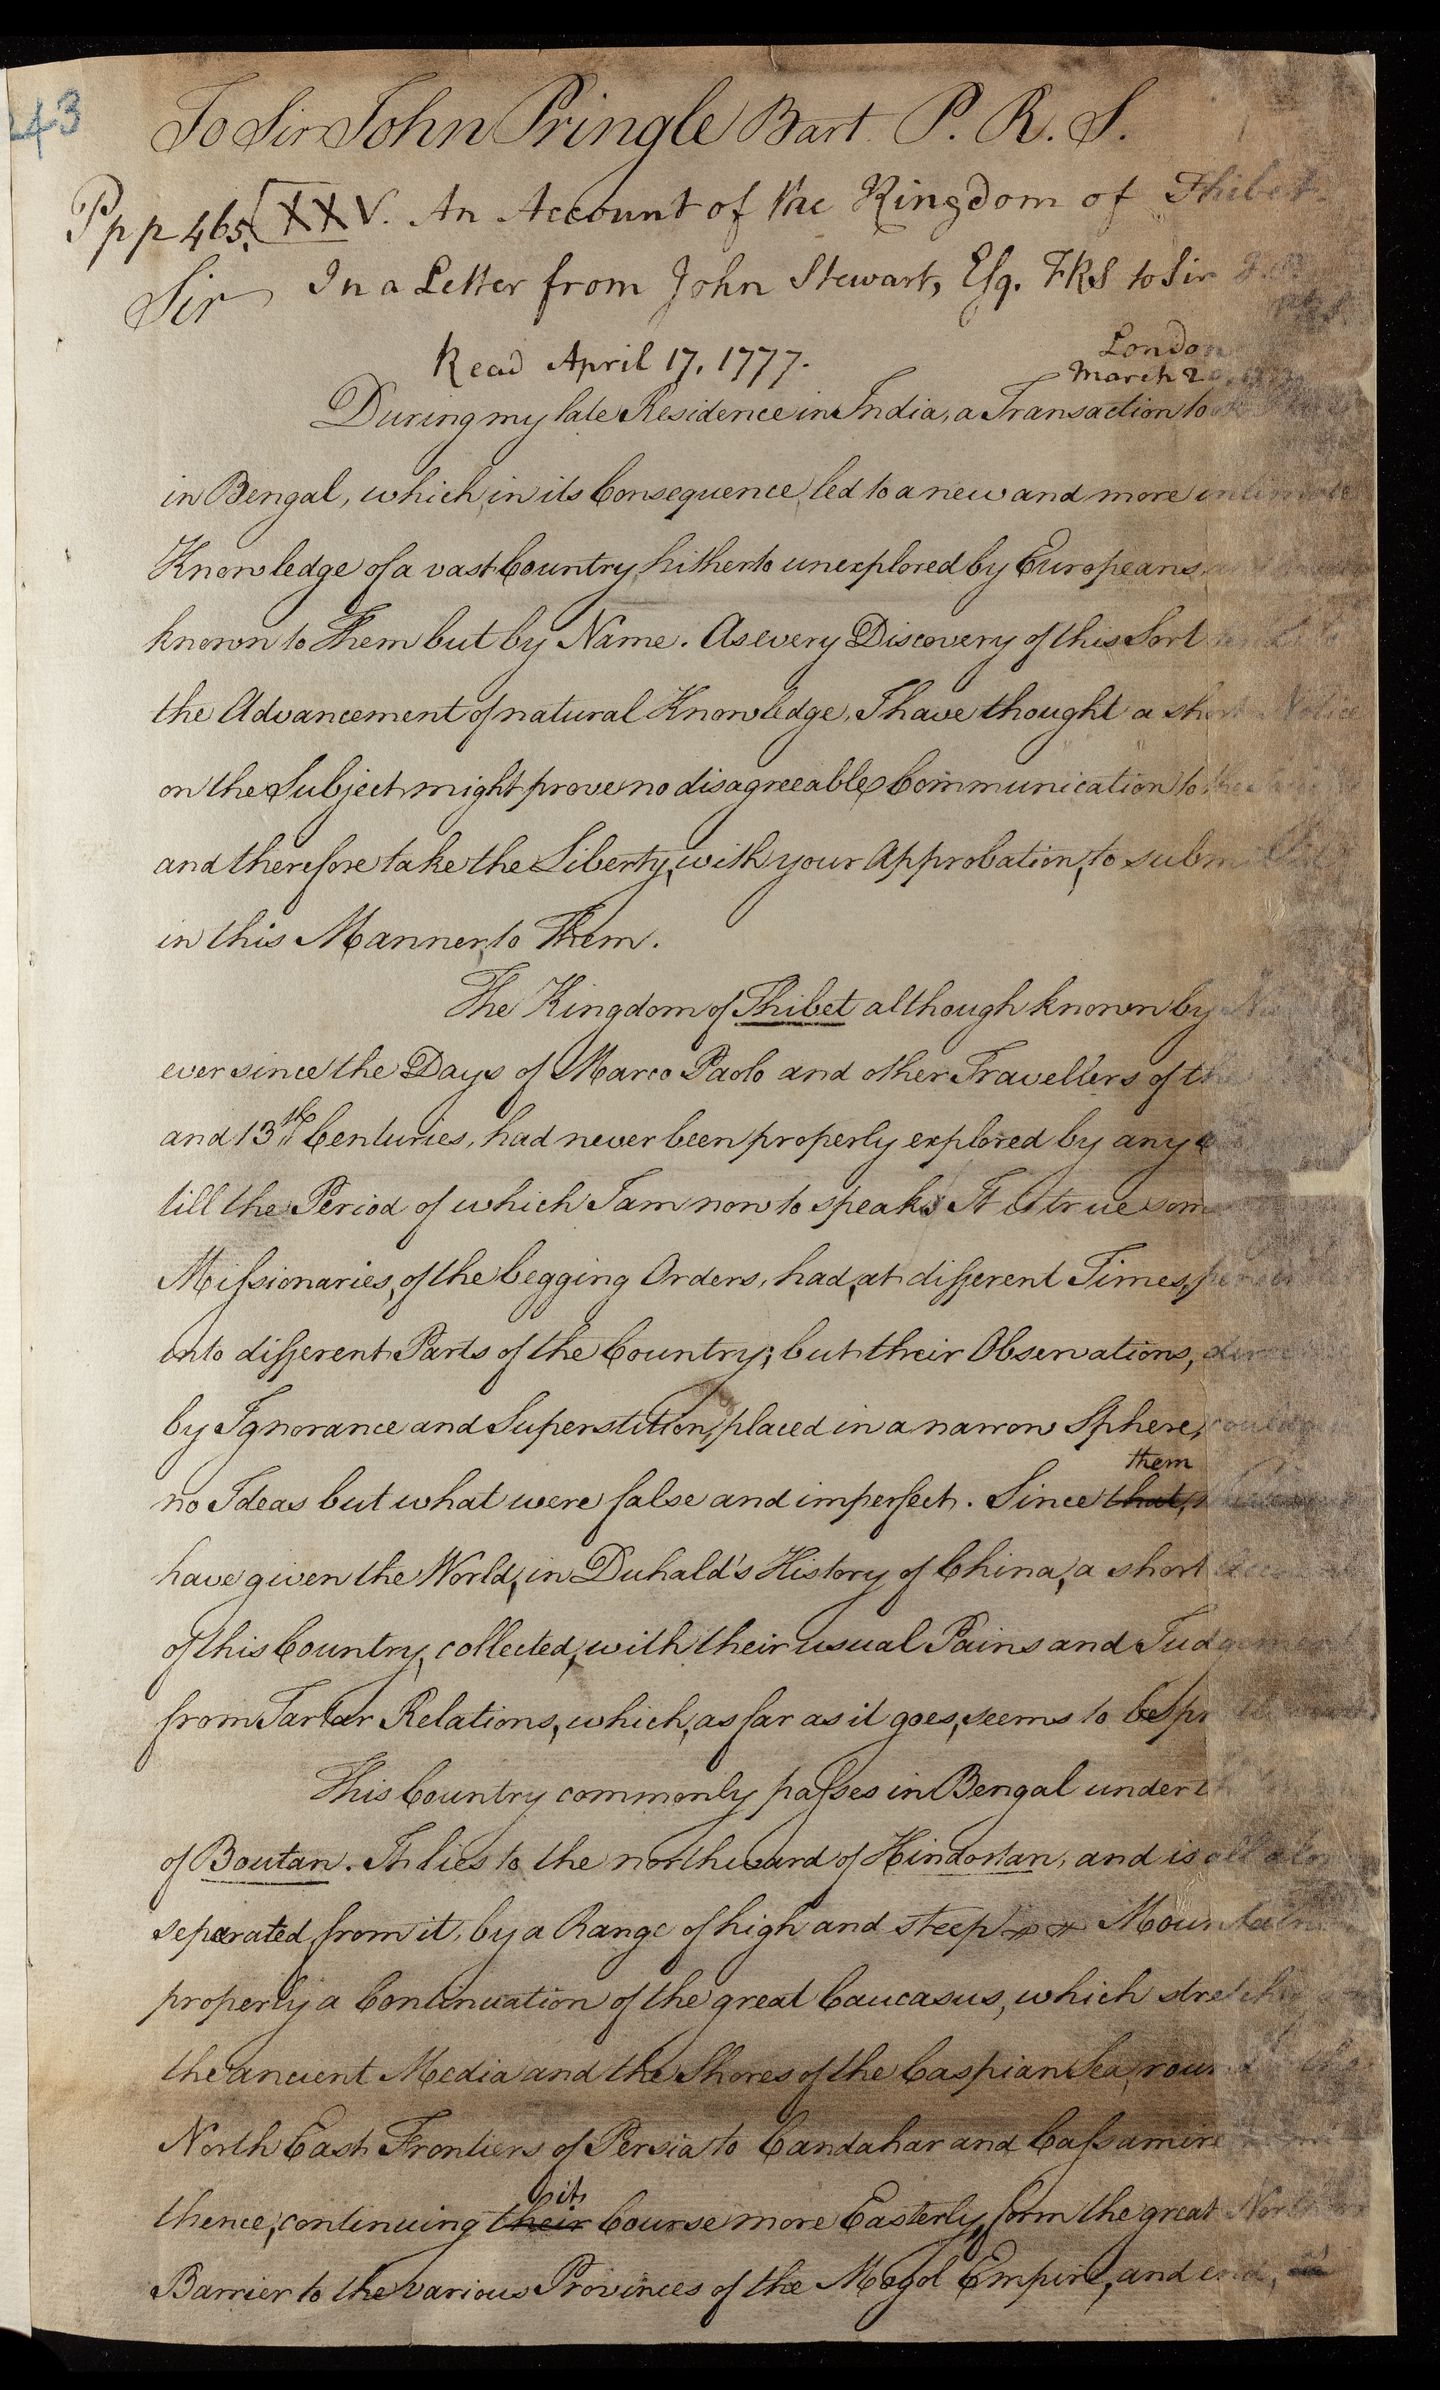 243
To Sir John Pringle Bart. P. R. S.
Ppp 465. XXV. An Account of the Kingdom of Thibet.
Sir In a Letter from John Stewart, Esq. FRS to Sir
Read April 17, 1777.
London
March 20,
During my late Residence in India, a Transaction took
in Bengal, which, in its Consequence, led to a new and more intimate
Knowledge of a vast Country, hitherto unexplored by Europeans,
known to Them but by Name. As every Discovery of this Sort tends to
the Advancement of natural Knowledge, I have thought a short Notice
on the Subject might prove no disagreeable Communication to the
and therefore take the Liberty, with your Approbation, to submit
in this Manner, to Them.
The Kingdom of Thibet although known by
ever since the Days of Marco Paolo and other Travellers of the
and 13th Centuries, had never been properly explored by any
till the Period of which I am now to speak. It is true some
Missionaries, of the begging Orders, had, at different Times,
into different Parts of the Country; but their Observations,
by Ignorance and Superstition, placed in a narrow Sphere, could
no Ideas but what were false and imperfect. Since that, them
have given the World, in Duhald's History of China, a short Account
of this Country, collected, with their usual Pains and Judgement
from Tartar Relations, which, as far as it goes, seems to be
This Country commonly passes in Bengal under the
of Boutan. It lies to the northward of Hindostan, and is all along
separated from it, by a Range of high and steep Mountains
properly a Continuation of the great Caucasus, which stretches
the ancient Media and the Shores of the Caspian Sea, round the
North East Frontiers of Persia to Candahar and Cassamire
thence, continuing their its Course more Easterly, form the great Northern
Barrier to the various Provinces of the Mogol Empire, and end,